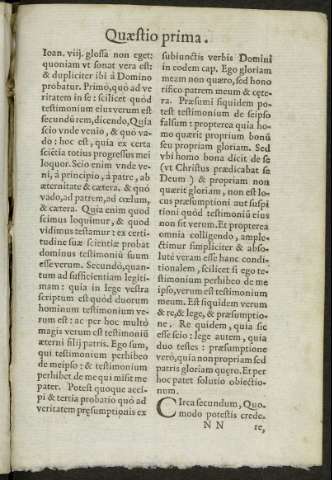 Quæstio prima.
Ioan. viij. glossa non eget:
quoniam vt sonat vera est:
& dupliciter ibi à Domino
probatur. Primò, quò ad ve
ritatem in se: scilicet quòd
testimonium eius verum est
secundũ rem, dicendo, Quia
scio vnde venio, & quò va-
do: hoc est, quia ex certa
sciẽtia totius progressus mei
loquor. Scio enim vnde ve-
ni, à principio, à patre, ab
æternitate & cætera. & quò
vado, ad patrem, ad cœlum,
& cætera. Quia enim quod
scimus loquimur, & quod
vidimus testamur: ex certi-
tudine suæ scientiæ probat
dominus testimoniũ suum
esse verum. Secundò, quan-
tum ad sufficientiam legiti-
mam: quia in lege vestra
scriptum est quòd duorum
hominum testimonium ve-
rum est: ac per hoc multò
magis verum est testimoniũ
æterni filij patris. Ego sum,
qui testimonium perhibeo
de meipso: & testimonium
perhibet de me qui misit me
pater. Potest quoque acci-
pi & tertia probatio quò ad
veritatem pręsumptionis ex
subiunctis verbis Domini
in eodem cap. Ego gloriam
meam non quæro, sed hono
rifico patrem meum & cęte-
ra. Præsumi siquidem po-
test testimonium de seipso
falsum: propterea quia ho-
mo quærit proprium bonũ
seu propriam gloriam. Sed
vbi homo bona dicit de se
(vt Christus prædicabat se
Deum) & propriam non
quærit gloriam, non est lo-
cus præsumptioni aut suspi
tioni quòd testimoniũ eius
non sit verum. Et propterea
omnia colligendo,ample-
ctimur simpliciter & abso-
lutè veram esse hanc condi-
tionalem, scilicet si ego te-
stimonium perhibeo de me
ipso, verum est testimonium
meum. Est siquidem verum
& re, & lege, & præsumptio-
ne. Re quidem, quia sic
esse scio: lege autem, quia
duo testes: præsumptione
verò, quia non propriam sed
patris gloriam quęro. Et per
hoc patet solutio obiectio-
num.
Circa secundum, Quo-
modo potestis crede-
N N re,